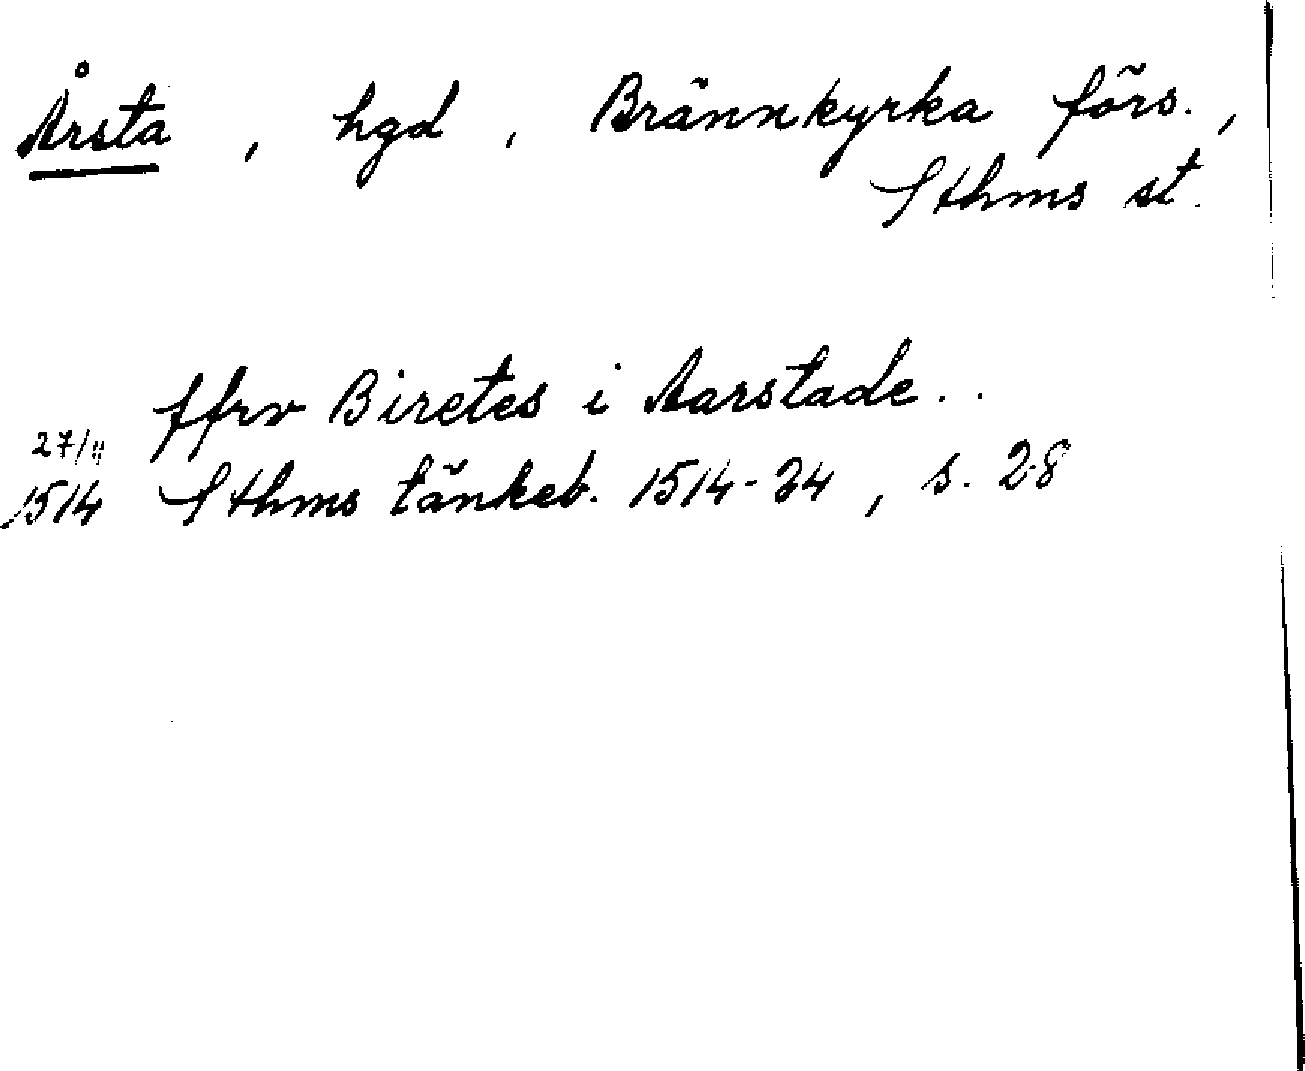 Årsta, hgd, Brännkyrka förs.,
Sthms st.
ffrv Biretes i Aarstade..
27/11
1514 Sthms tänkeb. 1514-24, s. 28